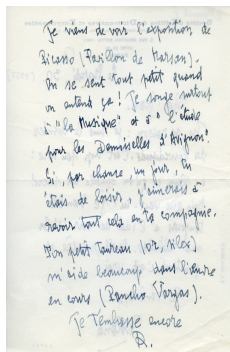 Je viens de voir l'exposition de
Picasso (Pavillon de Marsan).
On se sent tout petit quand
on entend ça ! Je songe surtout
à "la Musique" et à l'étude
pour les Demoiselles d'Avignon !
Si, par chance, un jour, tu
étais de loisir, j'aimerais à
revoir tout cela en ta compagnie.
Ton petit Taureau (or, silex)
m'aide beaucoup dans l'œuvre
en cours (Pancho Vargas).
Je t'embrasse encore
R.